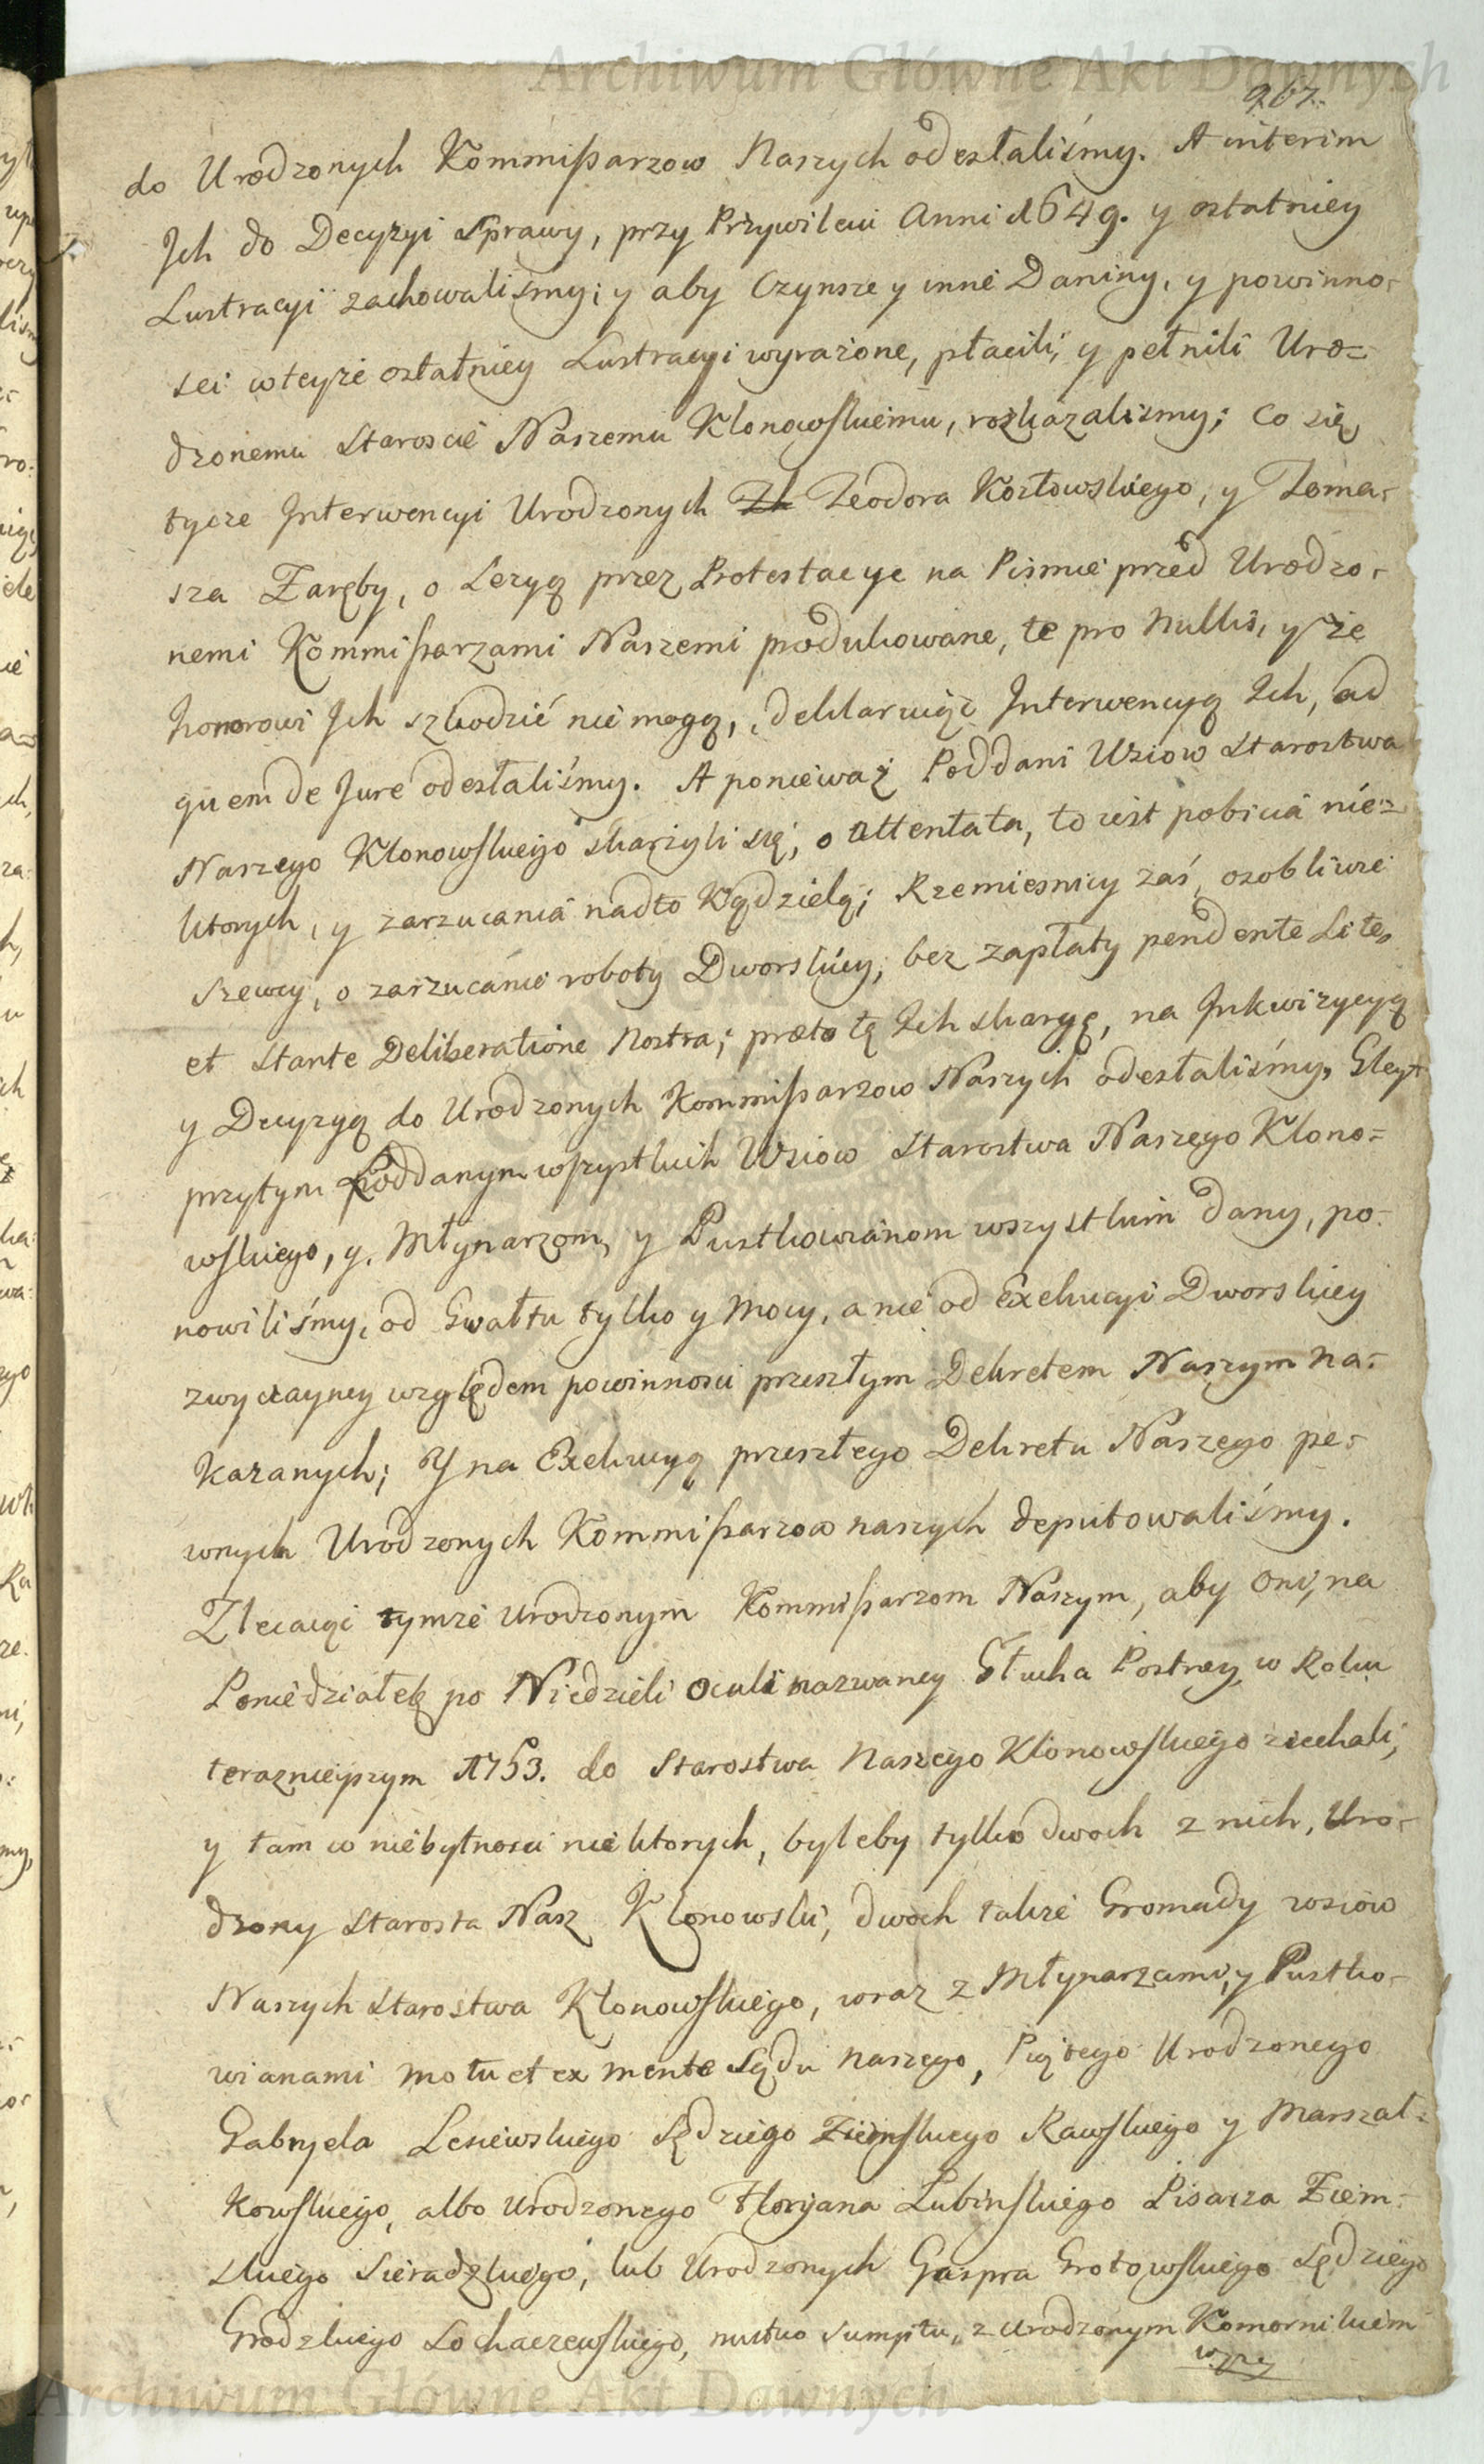 Archiwum Główne Akt Dawnych
967.
do Urodzonych Kommißarzow Naszych odesłaliśmy. A interim
Ich do Decyzyi Sprawy, przy Przywileiu Anni 1649. y ostatniey
Lustracyi zachowaliśmy; y aby Czynsze y inne Daniny, y powinno-
sci wteyże ostatniey Lustracyi wyrażone, płacili, y pełnili Uro=
dzonemu Staroscie Naszemu Klonowskiemu, rozkazalismy; Co się
tycze Interwencyi Urodzonych Teodora Kozłowskiego, y Toma-
sza Zaręby, o Lezyą przez Protestacye na Pismie przed Urodzo-
nemi Kommißarzami Naszemi produkowane, te pro Nullis, y że
honorowi Ich szkodzić nie mogą, deklaruiąc Interwencyą Ich, ad
quem de Jure odesłaliśmy. A ponieważ Poddani Wsiow Starostwa
Naszego Klonowskiego skarżyli się, o Attentata, to iest pobicia nie=
ktorych, y zarzucania nadto Kądzielą; Rzemiesnicy zaś, osobliwie
Szewcy, o zarzucanie roboty Dworskiey, bez zapłaty pendente Lite,
et stante Deliberatione Nostra; przeto tę Ich skargę, na Inkwizycyą
y Decyzyą do Urodzonych Kommißarzow Naszych odesłaliśmy, Gleyt
przytym Poddanym wszystkich Wsiow Starostwa Naszego Klono=
wskiego, y Młynarzom, y Pustkowianom wszystkim dany, po-
nowiliśmy, od Gwałtu tylko y Mocy, a nie od Exekucyi Dworskiey
zwyczayney względem powinnosci przeszłym Dekretem Naszym na-
kazanych; Y na Exekucyą przeszłego Dekretu Naszego pe-
wnych Urodzonych Kommißarzow naszych deputowaliśmy.
Zlecaiąc tymże Urodzonym Kommißarzom Naszym, aby oni, na
Poniedziałek po Niedzieli Oculi nazwaney Głucha Postney, w Roku
teraznieyszym 1753. do Starostwa Naszego Klonowskiego ziechali,
y tam w niebytnosci niektorych, byleby tylko dwoch z nich, Uro-
dzony Starosta Nasz Klonowski, dwoch także Gromady wsiow
Naszych Starostwa Klonowskiego, wraz z Młynarzami, y Pustko-
wianami motu et ex mente Sądu naszego, Piątego Urodzonego
Gabryela Lesiewskiego Sędziego Ziemskiego Rawskiego y Marszał-
kowskiego, albo Urodzonego Floryana Lubinskiego Pisarza Ziem-
skiego Sieradzkiego, lub Urodzonych Gaspra Grotowskiego Sędziego
Grodzkiego Sochaczewskiego, mutuo sumptu, z Urodzonym Komornikiem
Archiwum Główne Akt Dawnych